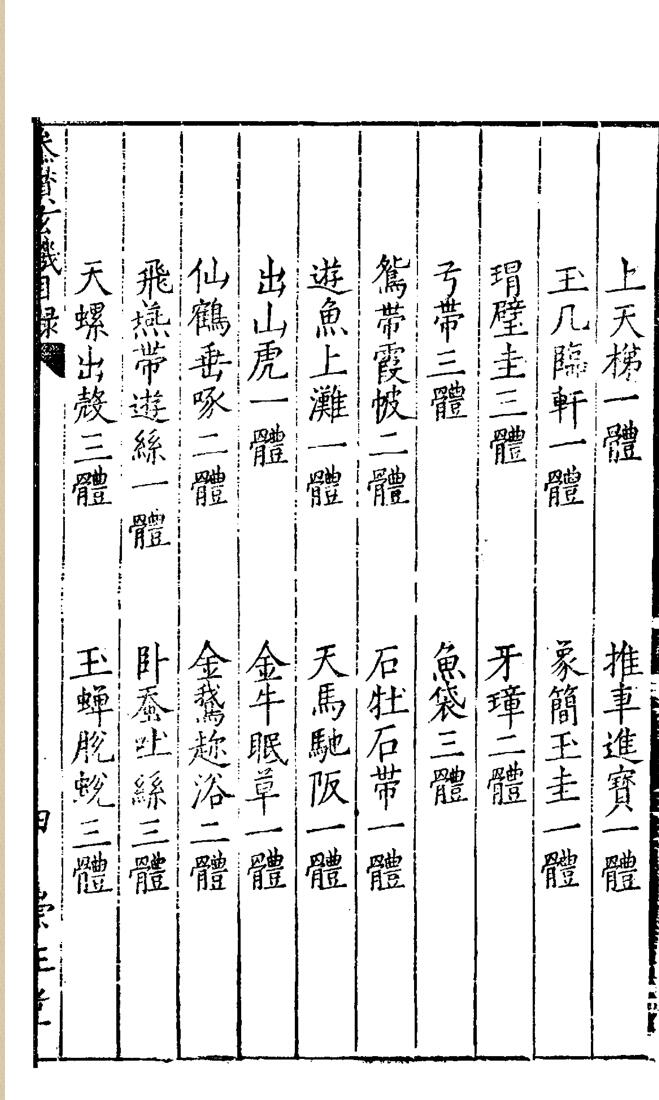 上天梯一體　推車進寶一體
玉几臨軒一體　象簡玉圭一體
琄璧圭三體　牙璋二體
弓帶三體　魚袋三體
鴛帶霞帔二體　石牡石帶一體
遊魚上灘一體　天馬馳阪一體
出山虎一體　金牛眠草一體
仙鶴垂啄二體　金鵞趂浴二體
飛燕帶遊絲一體　卧蚕吐絲三體
天螺出殼三體　玉蟬脫蛻三體
玄機目録